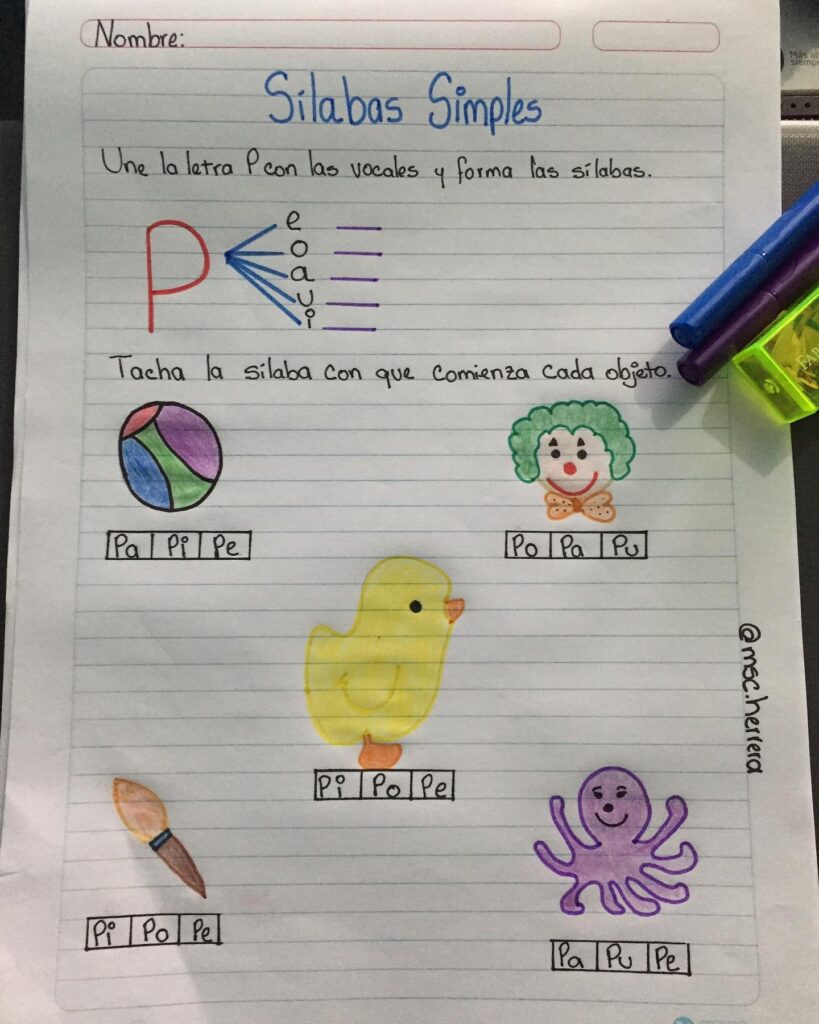 Nombre:
Sílabas Simples
Une la letra P con las vocales y forma las sílabas.
P
e
o
a
u
i
Tacha la sílaba con que comienza cada objeto.
Pa Pi Pe
Po Pa Pu
Pi Po Pe
Pi Po Pe
Pa Pu Pe
@msc.herrera